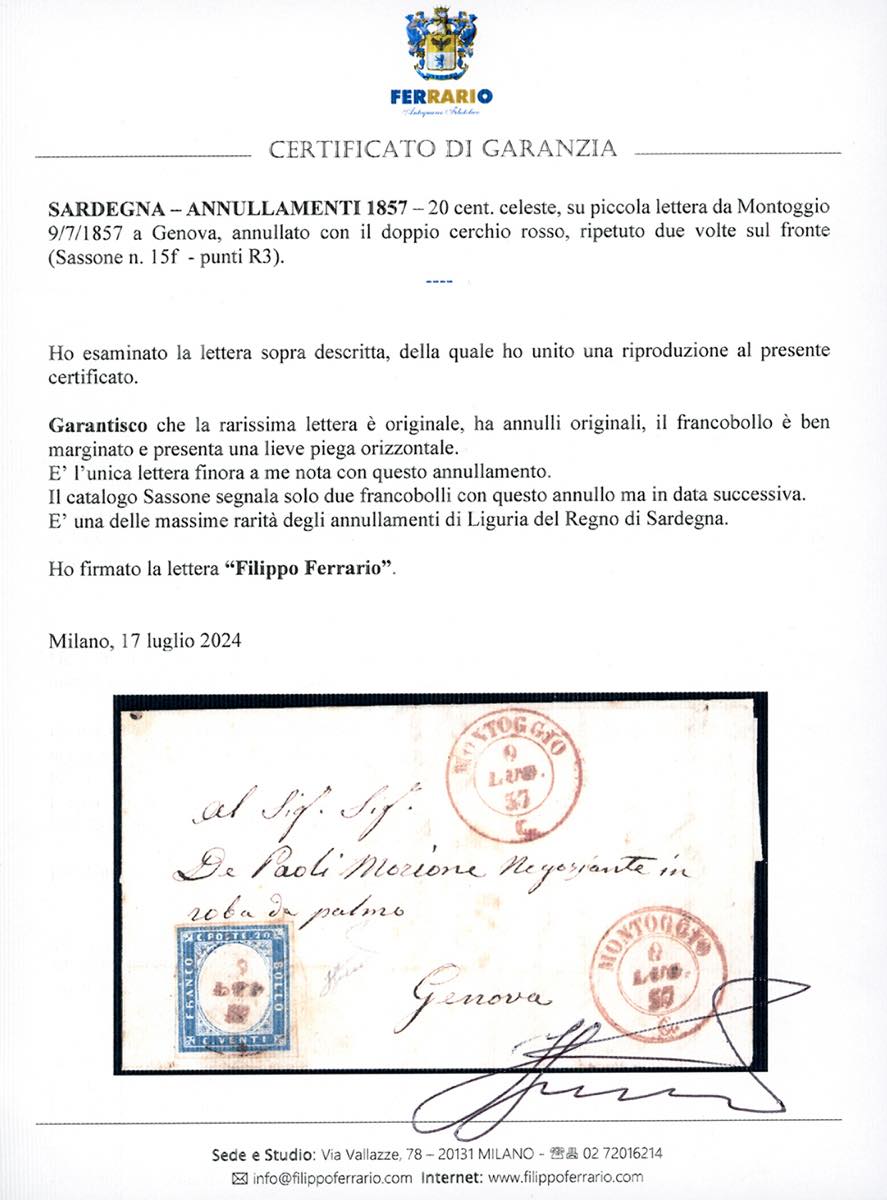 FERRARIO
CERTIFICATO DI GARANZIA
SARDEGNA – ANNULLAMENTI 1857 – 20 cent. celeste, su piccola lettera da Montoggio
9/7/1857 a Genova, annullato con il doppio cerchio rosso, ripetuto due volte sul fronte
(Sassone n. 15f - punti R3).
----
Ho esaminato la lettera sopra descritta, della quale ho unito una riproduzione al presente
certificato.
Garantisco che la rarissima lettera è originale, ha annulli originali, il francobollo è ben
marginato e presenta una lieve piega orizzontale.
E' l'unica lettera finora a me nota con questo annullamento.
Il catalogo Sassone segnala solo due francobolli con questo annullo ma in data successiva.
E' una delle massime rarità degli annullamenti di Liguria del Regno di Sardegna.
Ho firmato la lettera “Filippo Ferrario”.
Milano, 17 luglio 2024
MONTOGGIO
9
LUG.
57
Al Sig. Sig.
De Paoli Morione Negoziante in
roba da palmo
C. POSTE. 20
FRANCO
BOLLO
C. VENTI
Genova
MONTOGGIO
9
LUG.
57
Sede e Studio: Via Vallazze, 78 – 20131 MILANO - 02 72016214
info@filippoferrario.com Internet: www.filippoferrario.com